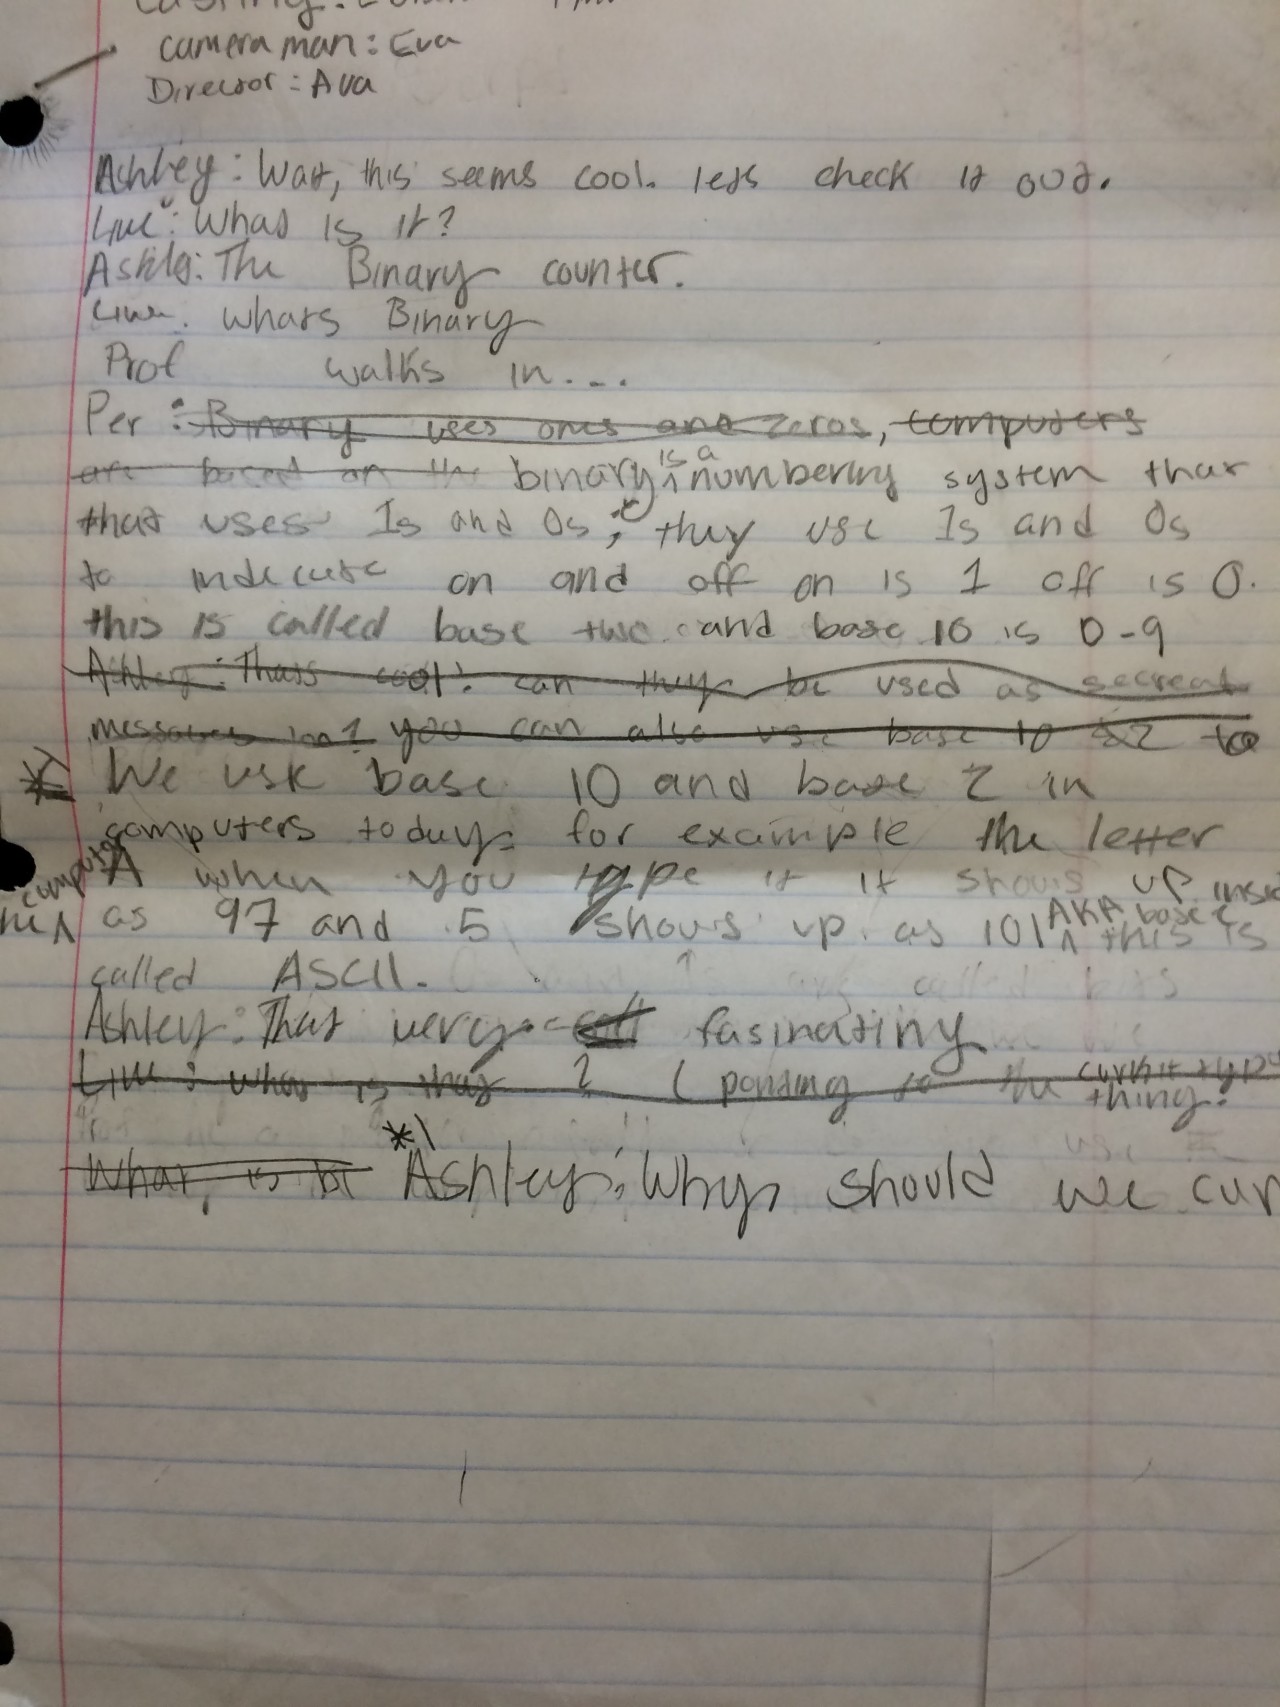 camera man: Eva
Director: Ava
Ashley: Wait, this seems cool. lets check it out.
What is it?
Ashley: The Binary counter.
whats Binary
Prof walks in....
Per: Binary uses ones and zeros, computers
are based on the binary is a numbering system that
that uses 1s and 0s; they use 1s and 0s
to indecate on and off on is 1 off is 0.
this is called base two and base 10 is 0-9
Ashley: Thats cool! can they be used as secreat
messages you can also use base 10 & 2 to
* We use base 10 and base 2 in
computers today: for example the letter
A when you type it it shows up insid
computer as 97 and 5 shows up as 101 AKA base 2 this is
called ASCII.
Ashley: That very fasinating
what is that? (ponting to the thing.
What is it *\ Ashley: Why should we